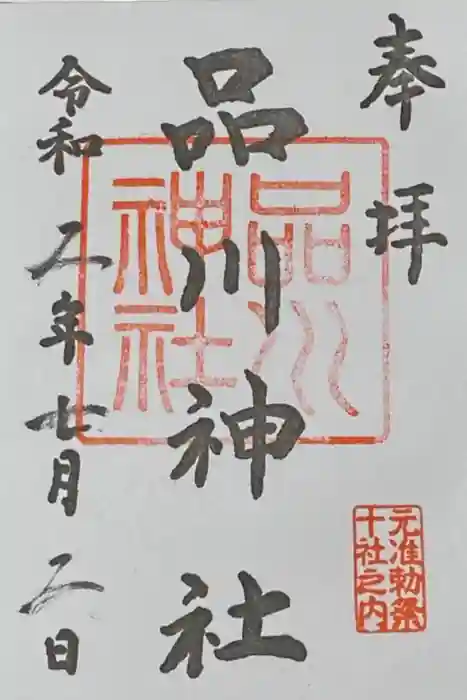 奉拝
元准勅祭
十社之内
品川神社
品川
神社
令和二年七月二日